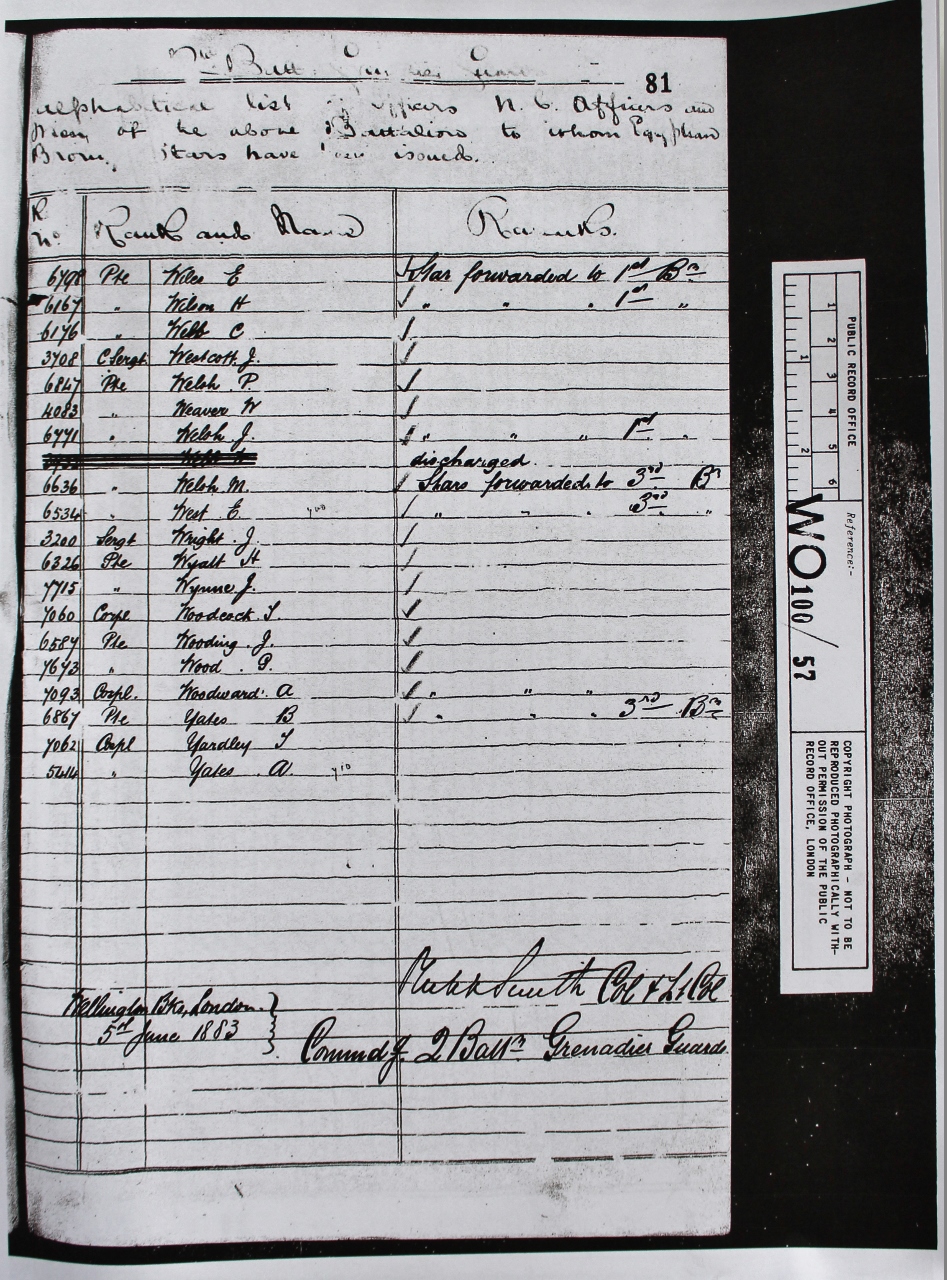 81
2nd Batt. Grenadier Guards
Alphabetical list of Officers N. C. Officers and
Men of the above Battalions to whom Egyptian
Bronze Stars have been issued.
R. No. Rank and Name Remarks.
6798 Pte Wiles E ✓ Star forwarded to 1st Bn
6167 " Wilson H ✓ " " " 1st "
6176 " Webb C ✓
3708 C. Sergt Westcott J. ✓
6847 Pte Welsh P. ✓
4083 " Weaver W ✓
6771 " Welsh J. ✓ " " " 1st "
discharged.
6636 " Welsh M. ✓ Stars forwarded to 3rd Bn
6534 " West E. ✓ " " " 3rd "
3200 Sergt Wright J. ✓
6326 Pte Wyatt H ✓
7715 " Wynne J. ✓
7060 Corpl Woodcock T. ✓
6587 Pte Wooding J. ✓
7673 " Wood P. ✓
7093 Corpl. Woodward A ✓ " " "
6867 Pte Yates B ✓ " " " 3rd Bn
7062 Corpl Yardley T
5414 " Yates A.
Smith Col & Lt Col
Wellington Bks, London.
5th June 1883
Commdg 2 Battn Grenadier Guards
1 2 3 4 5 6
1 2
PUBLIC RECORD OFFICE
Reference:-
WO 100 / 57
COPYRIGHT PHOTOGRAPH - NOT TO BE
REPRODUCED PHOTOGRAPHICALLY WITH-
OUT PERMISSION OF THE PUBLIC
RECORD OFFICE, LONDON